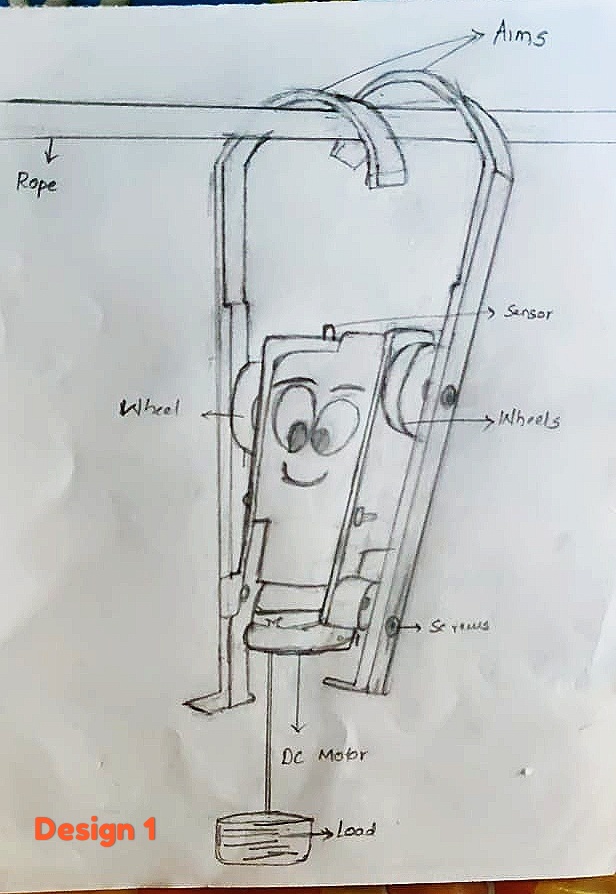 Arms
Rope
Sensor
Wheel
Wheels
Screws
DC Motor
Load
Design 1